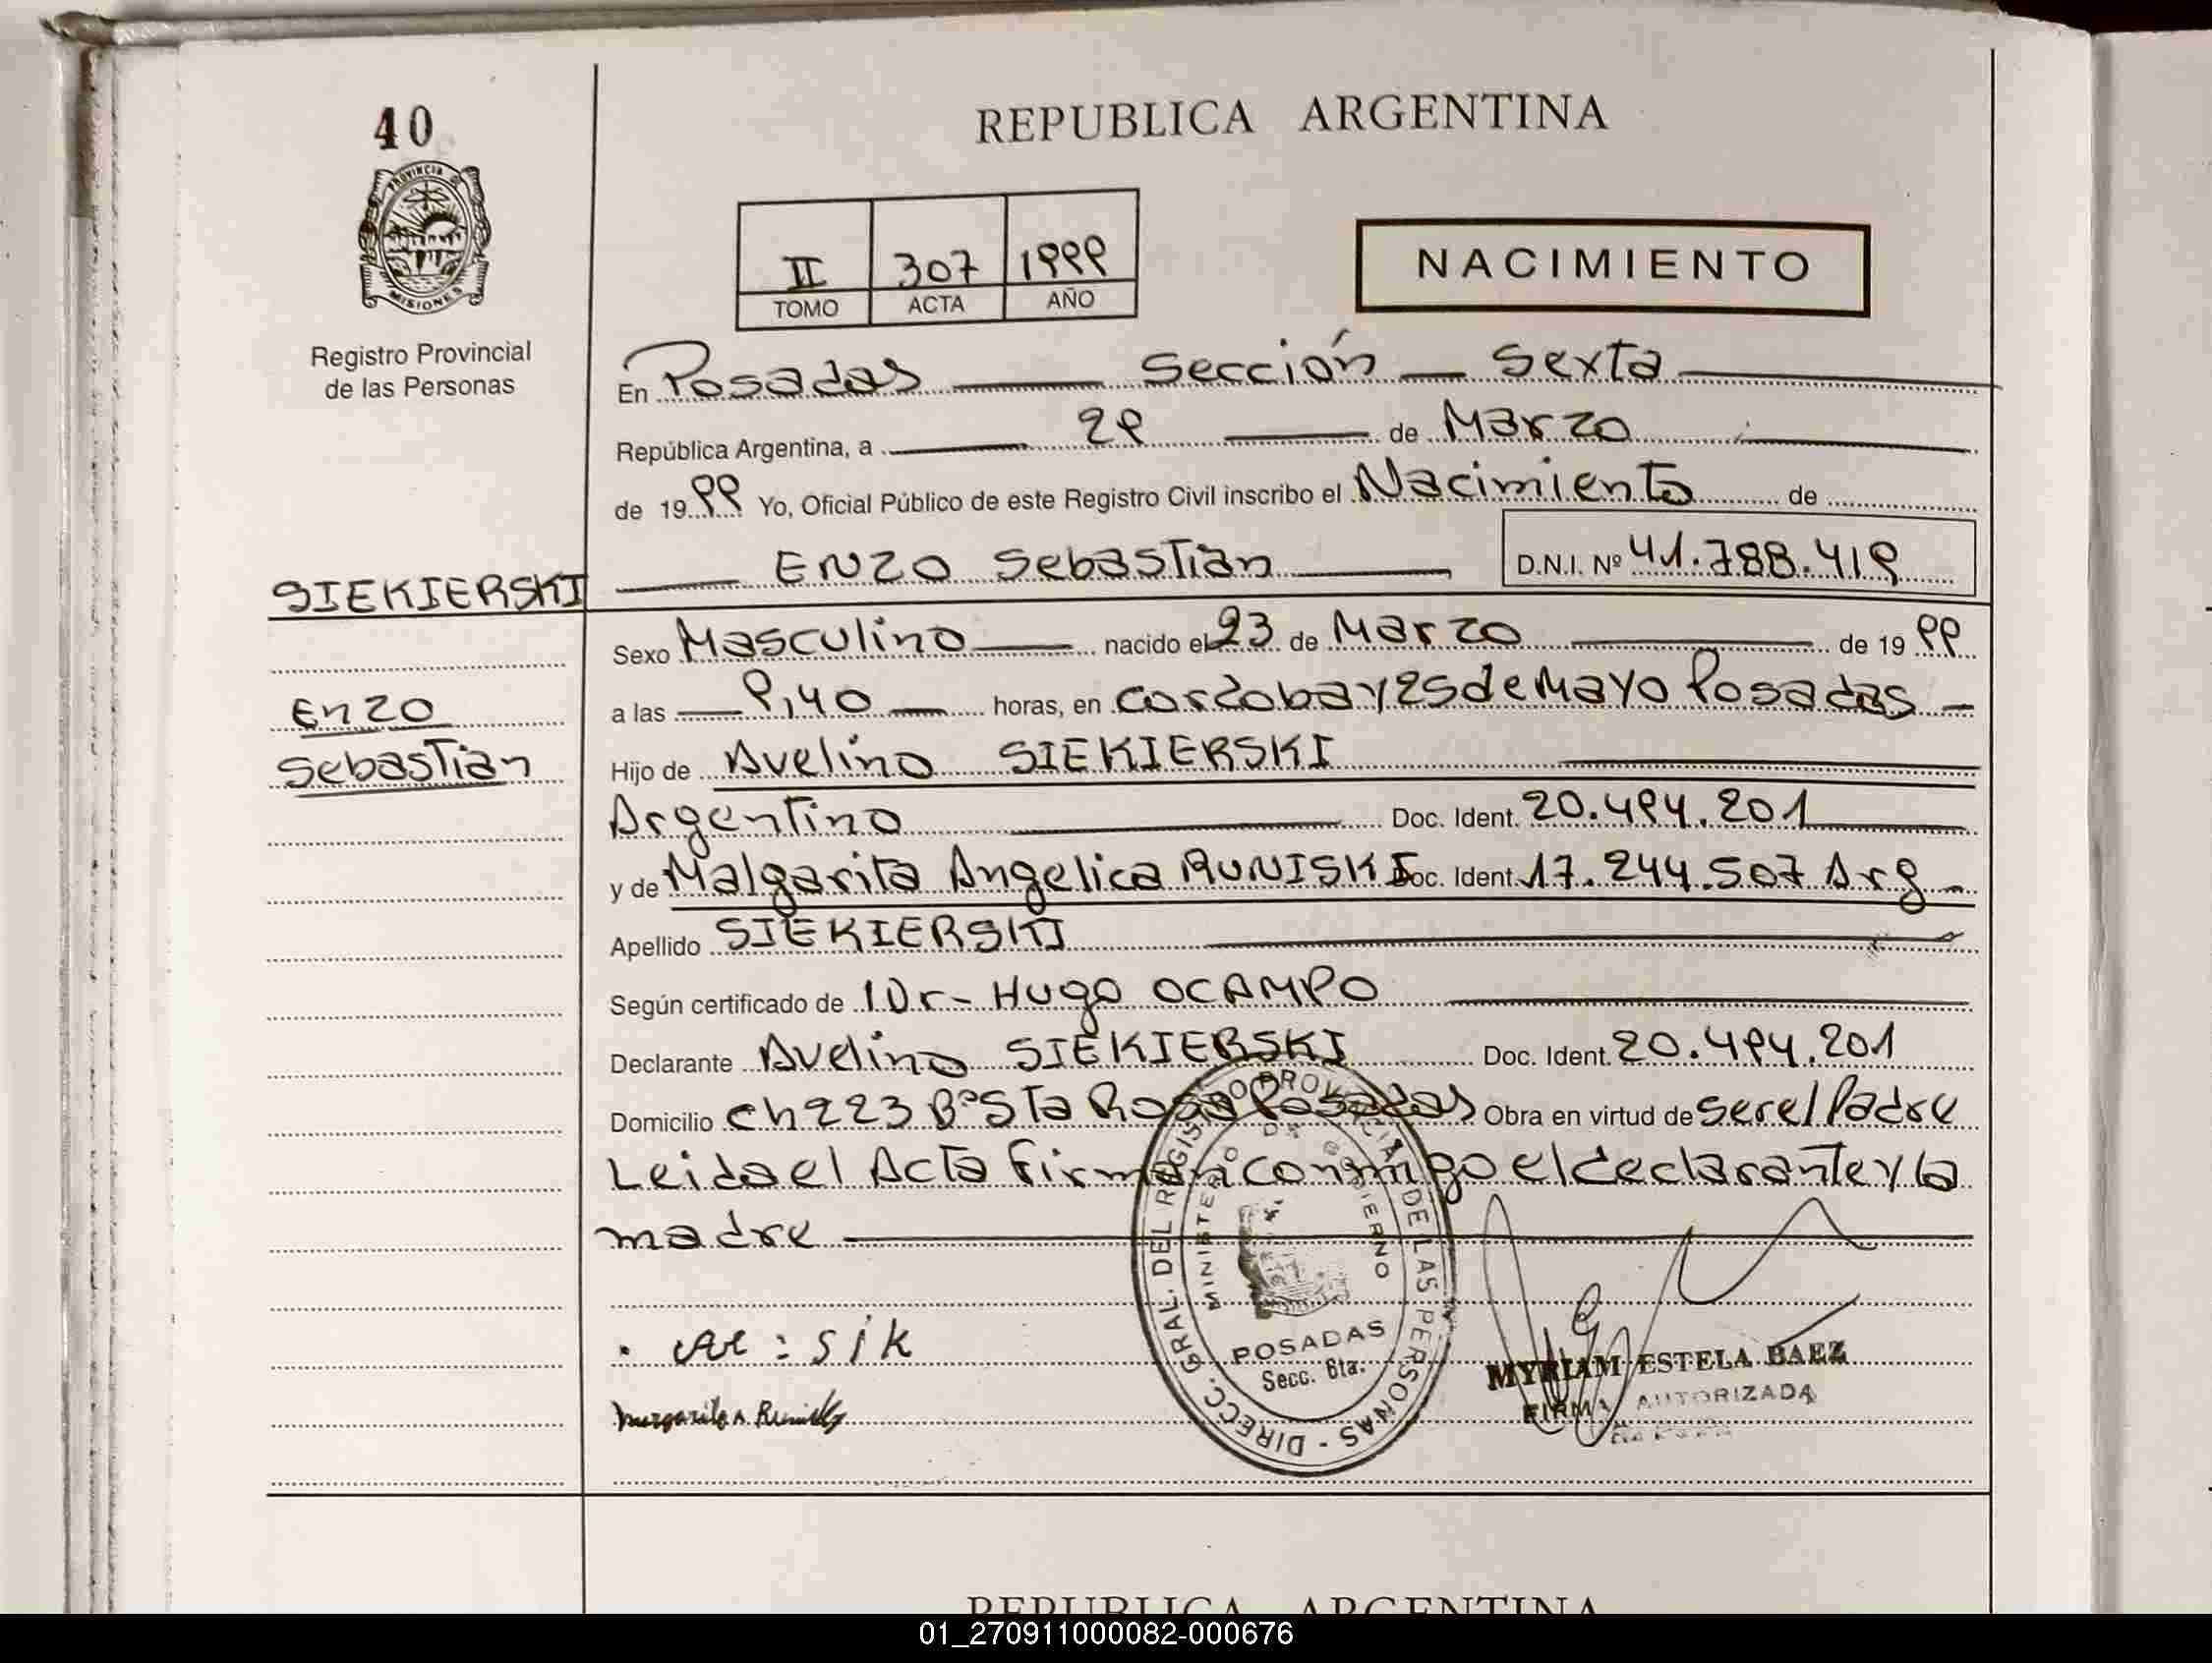 40
REPUBLICA ARGENTINA
PROVINCIA D
MISIONES
II 307 1999
TOMO ACTA AÑO
NACIMIENTO
Registro Provincial
de las Personas
En Posadas Sección Sexta
República Argentina, a 29 de Marzo
de 1999 Yo, Oficial Público de este Registro Civil inscribo el Nacimiento de
SIEKIERSKI
ENZO Sebastián D.N.I. Nº 41.788.419
Sexo Masculino nacido el 23 de Marzo de 1999
Enzo
a las 9,40 horas, en Cordoba y 25 de Mayo Posadas
Sebastián
Hijo de Avelino SIEKIERSKI
Argentino Doc. Ident. 20.494.201
y de Malgarita Angelica RUNISKI Doc. Ident. 17.244.507 Arg
Apellido SIEKIERSKI
Según certificado de Dr- Hugo OCAMPO
Declarante Avelino SIEKIERSKI Doc. Ident. 20.494.201
Domicilio ch 223 Bº Sta Rosa Posadas Obra en virtud de ser el Padre
Leida el Acta firman conmigo el declarante y la
madre
DIRECC. GRAL. DEL REGISTRO PROVINCIAL DE LAS PERSONAS -
MINISTERIO DE GOBIERNO
POSADAS
Secc. 6ta.
sik
MYRIAM ESTELA BAEZ
FIRMA AUTORIZADA
REPUBLICA ARGENTINA
01_270911000082-000676